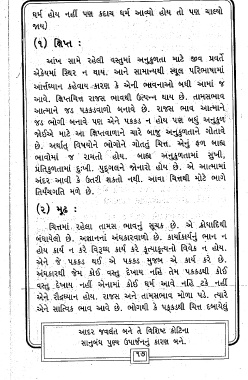 ધર્મ હોય નહીં પણ કદાચ ધર્મ આવ્યો હોય તો પણ ચાલ્યો
જાય)
(૧) ક્ષિપ્ત :
આંખ સામે રહેલી વસ્તુમાં અનુકૂળતા માટે જીવ પ્રવર્તે
એકેયમાં સ્થિર ન થાય. આને સામાન્યથી સ્થૂલ પરિભાષામાં
આર્તધ્યાન કહેવાય કારણ કે એની ભાવનાઓ બધી આમાં જ
આવે. ક્ષિપ્તચિત્ત રાજસ ભાવથી ઉત્પન્ન થાય છે. તામસભાવ
આત્માને જડ પકડવાળો બનાવે છે. રાજસ ભાવ આત્માને
જડ ભોગી બનાવે પણ એને પકકડ ન હોય પણ બધું અનુકૂળ
જોઈએ માટે આ ક્ષિપ્તવાળાને ચારે બાજુ અનુકૂળતાને ગોતાવે
છે. અર્થાત્ વિષયોને ભોગીને ગોતતું ચિત્ત. એનું ફળ બાહ્ય
ભાવોમાં જ રાચતો હોય. બાહ્ય અનુકૂળતામાં સુખી,
પ્રતિકૂળતામાં દુઃખી. પુદ્ગલને જોનારો હોય છે. એ આત્મામાં
અંદર આવી કે ઉતરી શકતો નથી. આવા ચિત્તથી મોટે ભાગે
તિર્યંચગતિ મળે છે.
(૨) મૂઢ :
ચિત્તમાં રહેલા તામસ ભાવનું સૂચક છે. એ ક્રોધાદિથી
બંધાયેલો છે. અજ્ઞાનનાં અંધકારવાળો છે. કાર્યાકાર્યનું ભાન ન
હોય કાર્ય ન કરે વિરૂધ્ધ કાર્ય કરે કૃત્યાકૃત્યનો વિવેક ન હોય.
એને જે પકકડ થઈ એ પકકડ મુજબ એ કાર્ય કરે છે.
અંધકારથી જેમ કોઈ વસ્તુ દેખાય નહિ તેમ પકકડથી કોઈ
વસ્તુ દેખાય નહીં એનામાં કોઈ ધર્મ આવે નહિ ટકે નહીં
એને રૌદ્રધ્યાન હોય. રાજસ અને તામસભાવ મોળા પડે. ત્યારે
એને સાત્વિક ભાવ આવે છે. ભોગથી કે પકકડથી ચિત્ત દબાયેલું
આદર જ્વલંત બને તે વિશિષ્ટ કોટિના
સાનુબંધ પુણ્ય ઉપાર્જનનું કારણ બને.
૧૭